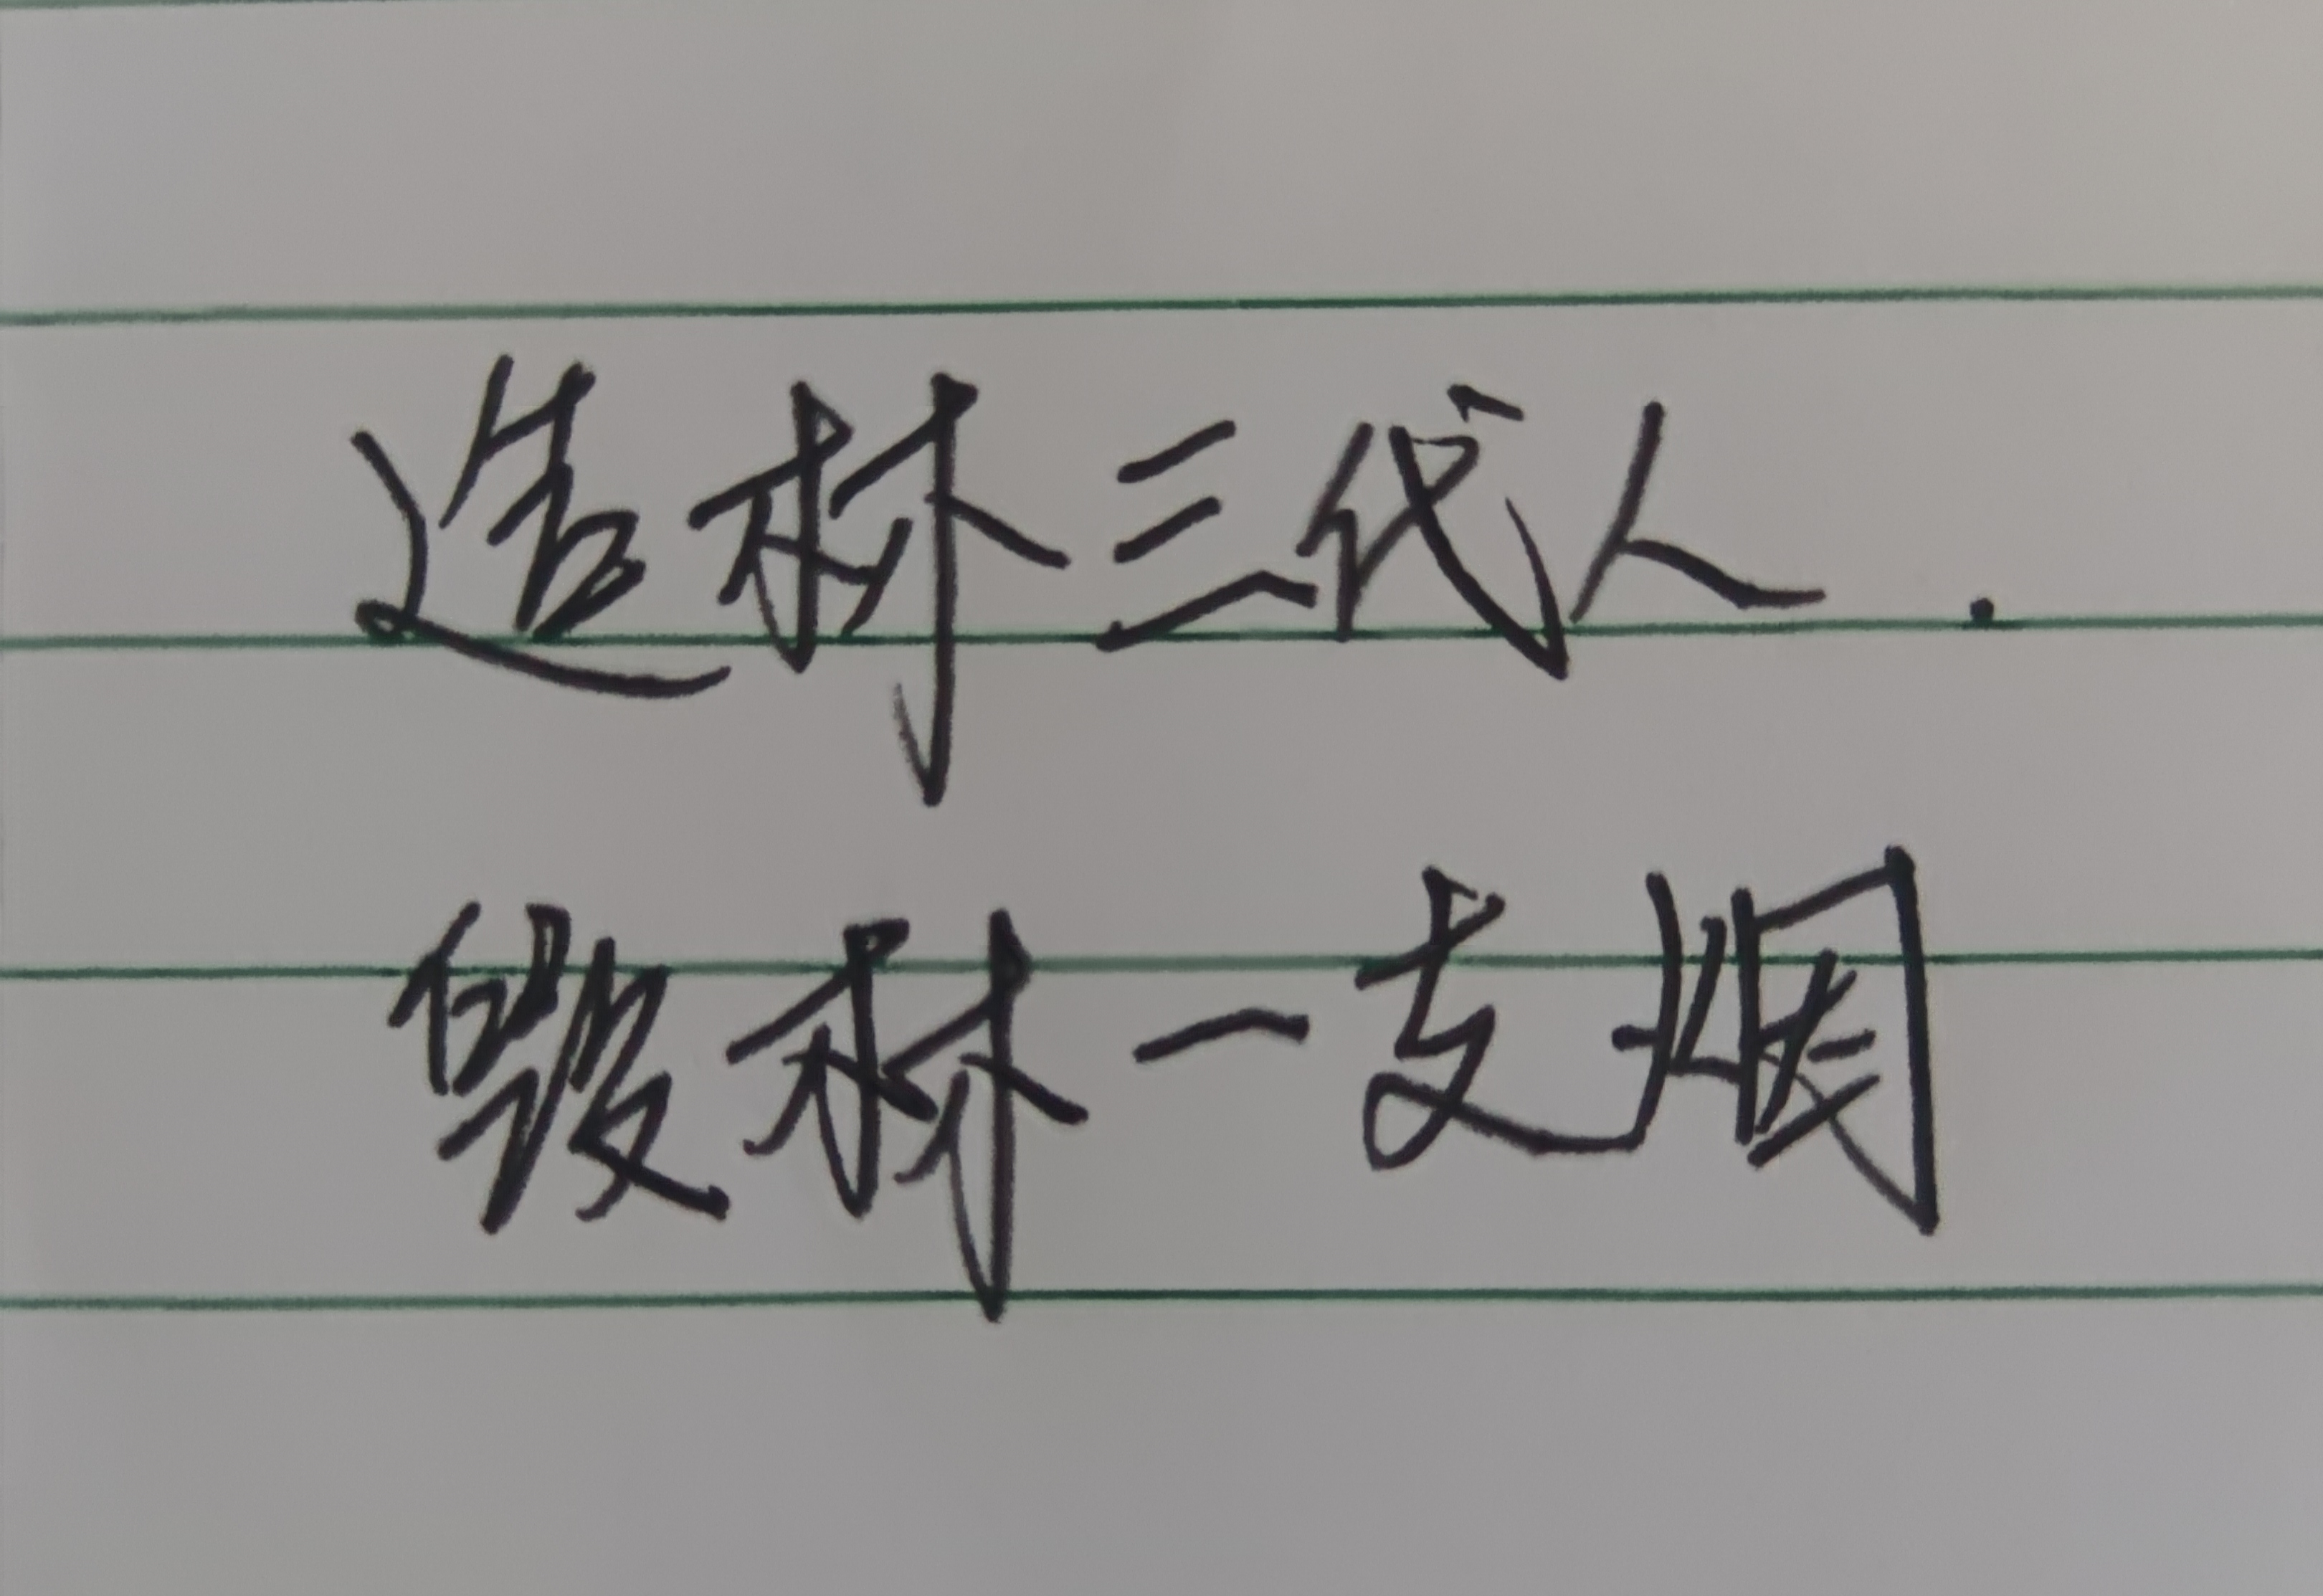 造林三代人.
毁林一支烟